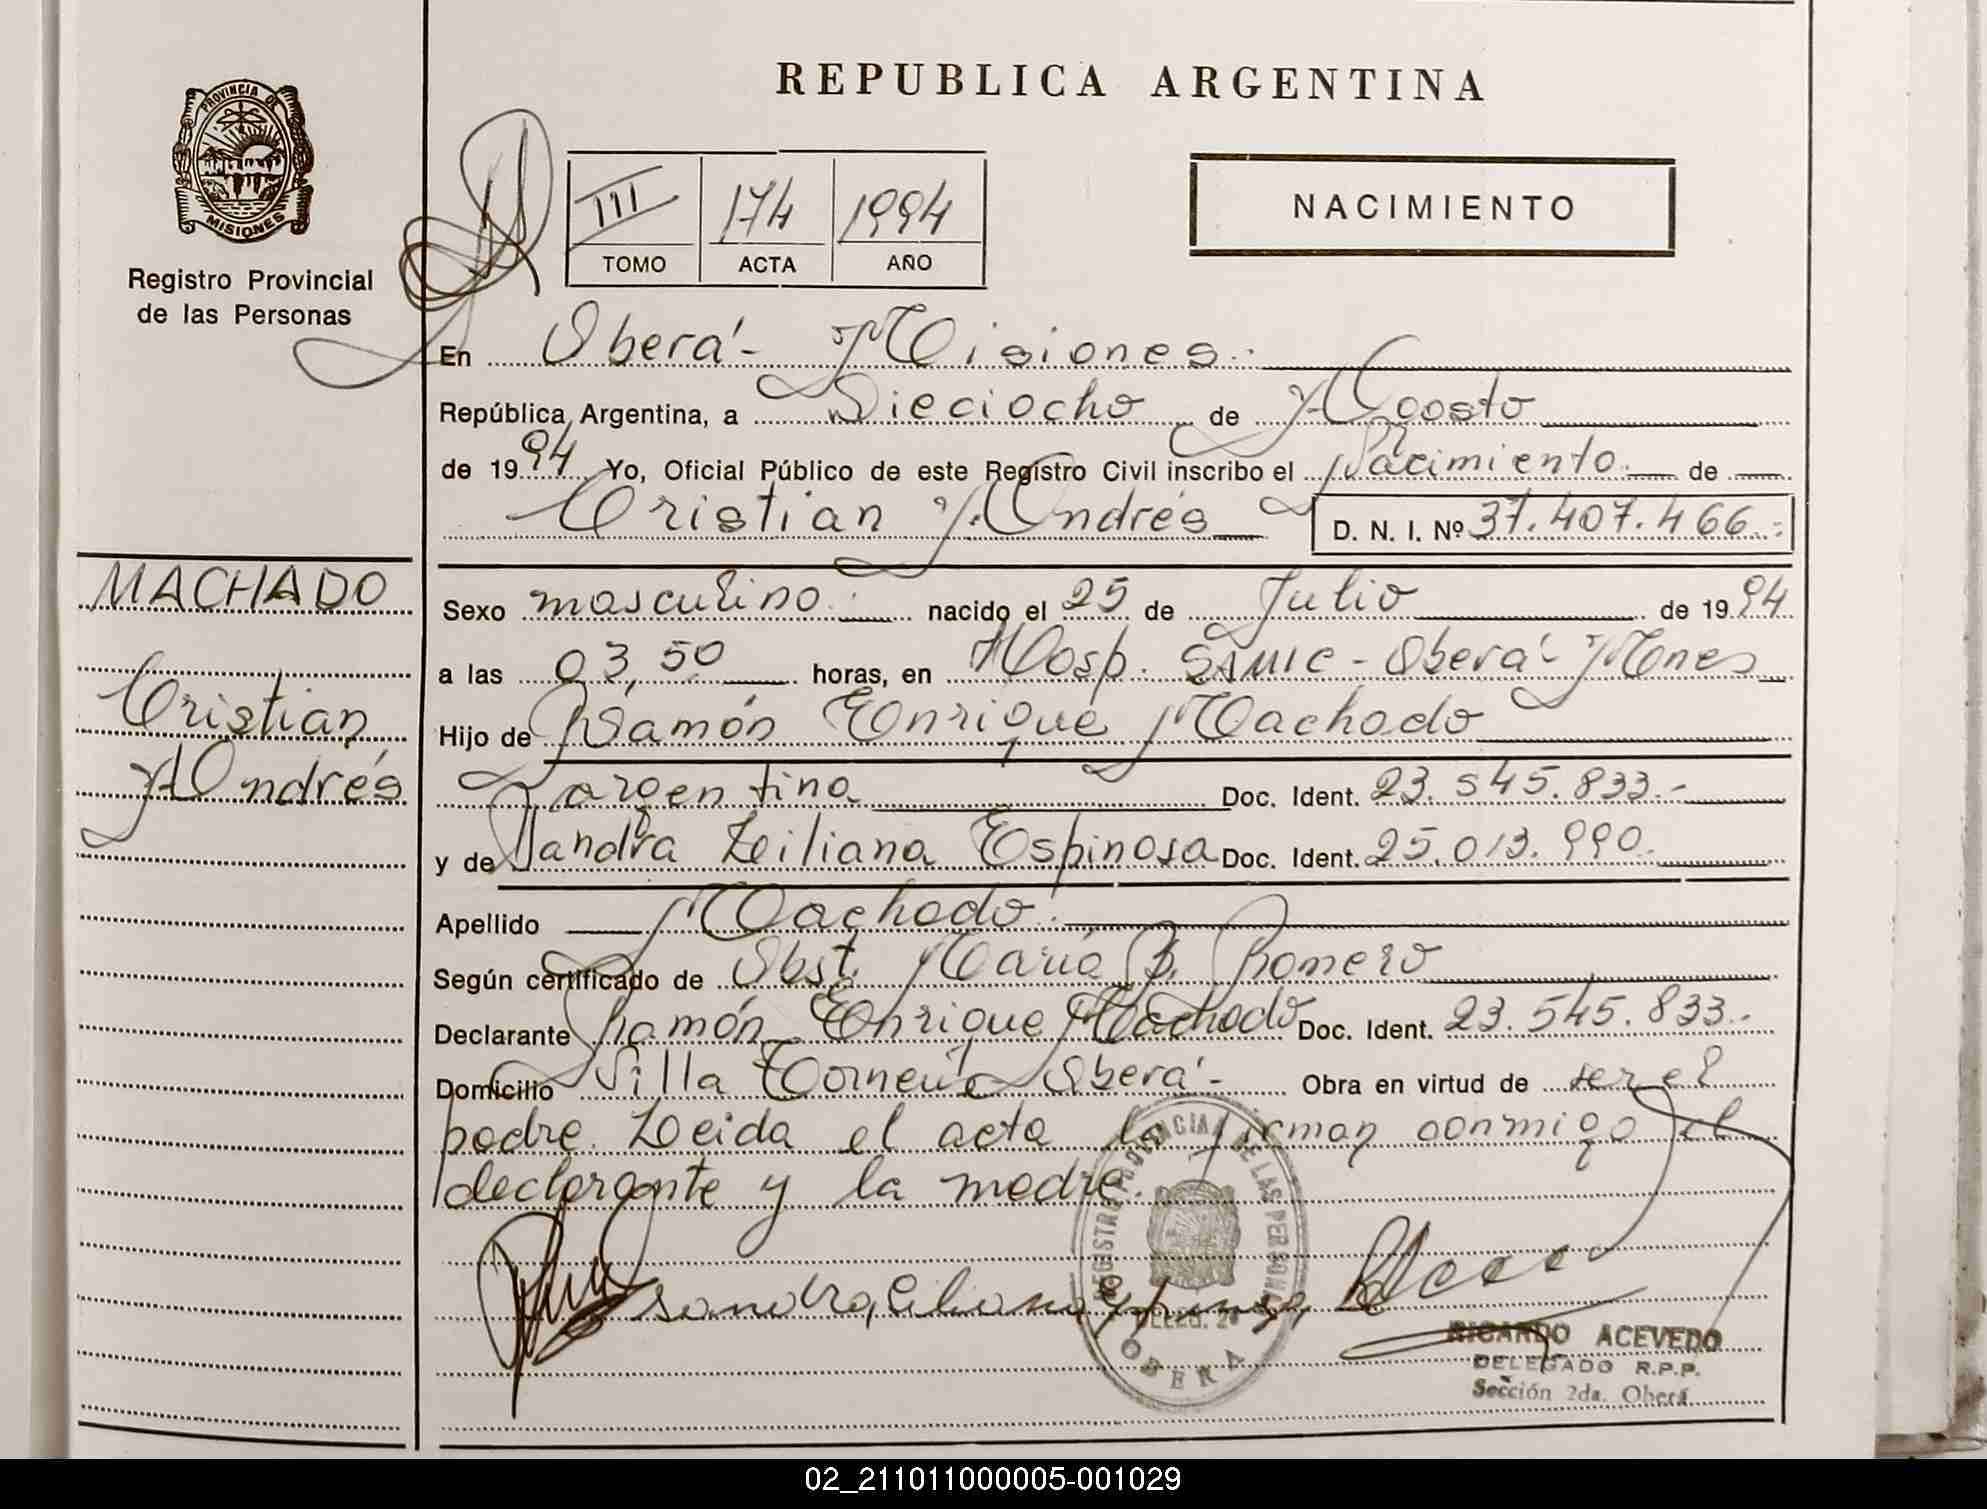 REPUBLICA ARGENTINA
PROVINCIA DE
MISIONES
Registro Provincial
de las Personas
III 174 1994
TOMO ACTA AÑO
NACIMIENTO
En Oberá - Misiones.
República Argentina, a Dieciocho de Agosto
de 1994 Yo, Oficial Público de este Registro Civil inscribo el Nacimiento de
Cristian Andrés D. N. I. Nº 37.407.466.-
MACHADO
Cristian
Andrés
Sexo masculino nacido el 25 de Julio de 1994
a las 03,50 horas, en Hosp. SAMIC - Oberá - Mnes
Hijo de Ramón Enrique Machado
argentino Doc. Ident. 23.545.833.-
y de Sandra Liliana Espinosa Doc. Ident. 25.013.990.
Apellido Machado.
Según certificado de Obst. María B. Romero
Declarante Ramón Enrique Machado Doc. Ident. 23.545.833.
Domicilio Villa Oberá - Obra en virtud de ser el
padre. Leida el acta la firman conmigo el
declarante y la madre.
REGISTRO PROVINCIAL DE LAS PERSONAS
DELEG. 2ª
OBERA
RICARDO ACEVEDO
DELEGADO R.P.P.
Sección 2da. Oberá
02_211011000005-001029